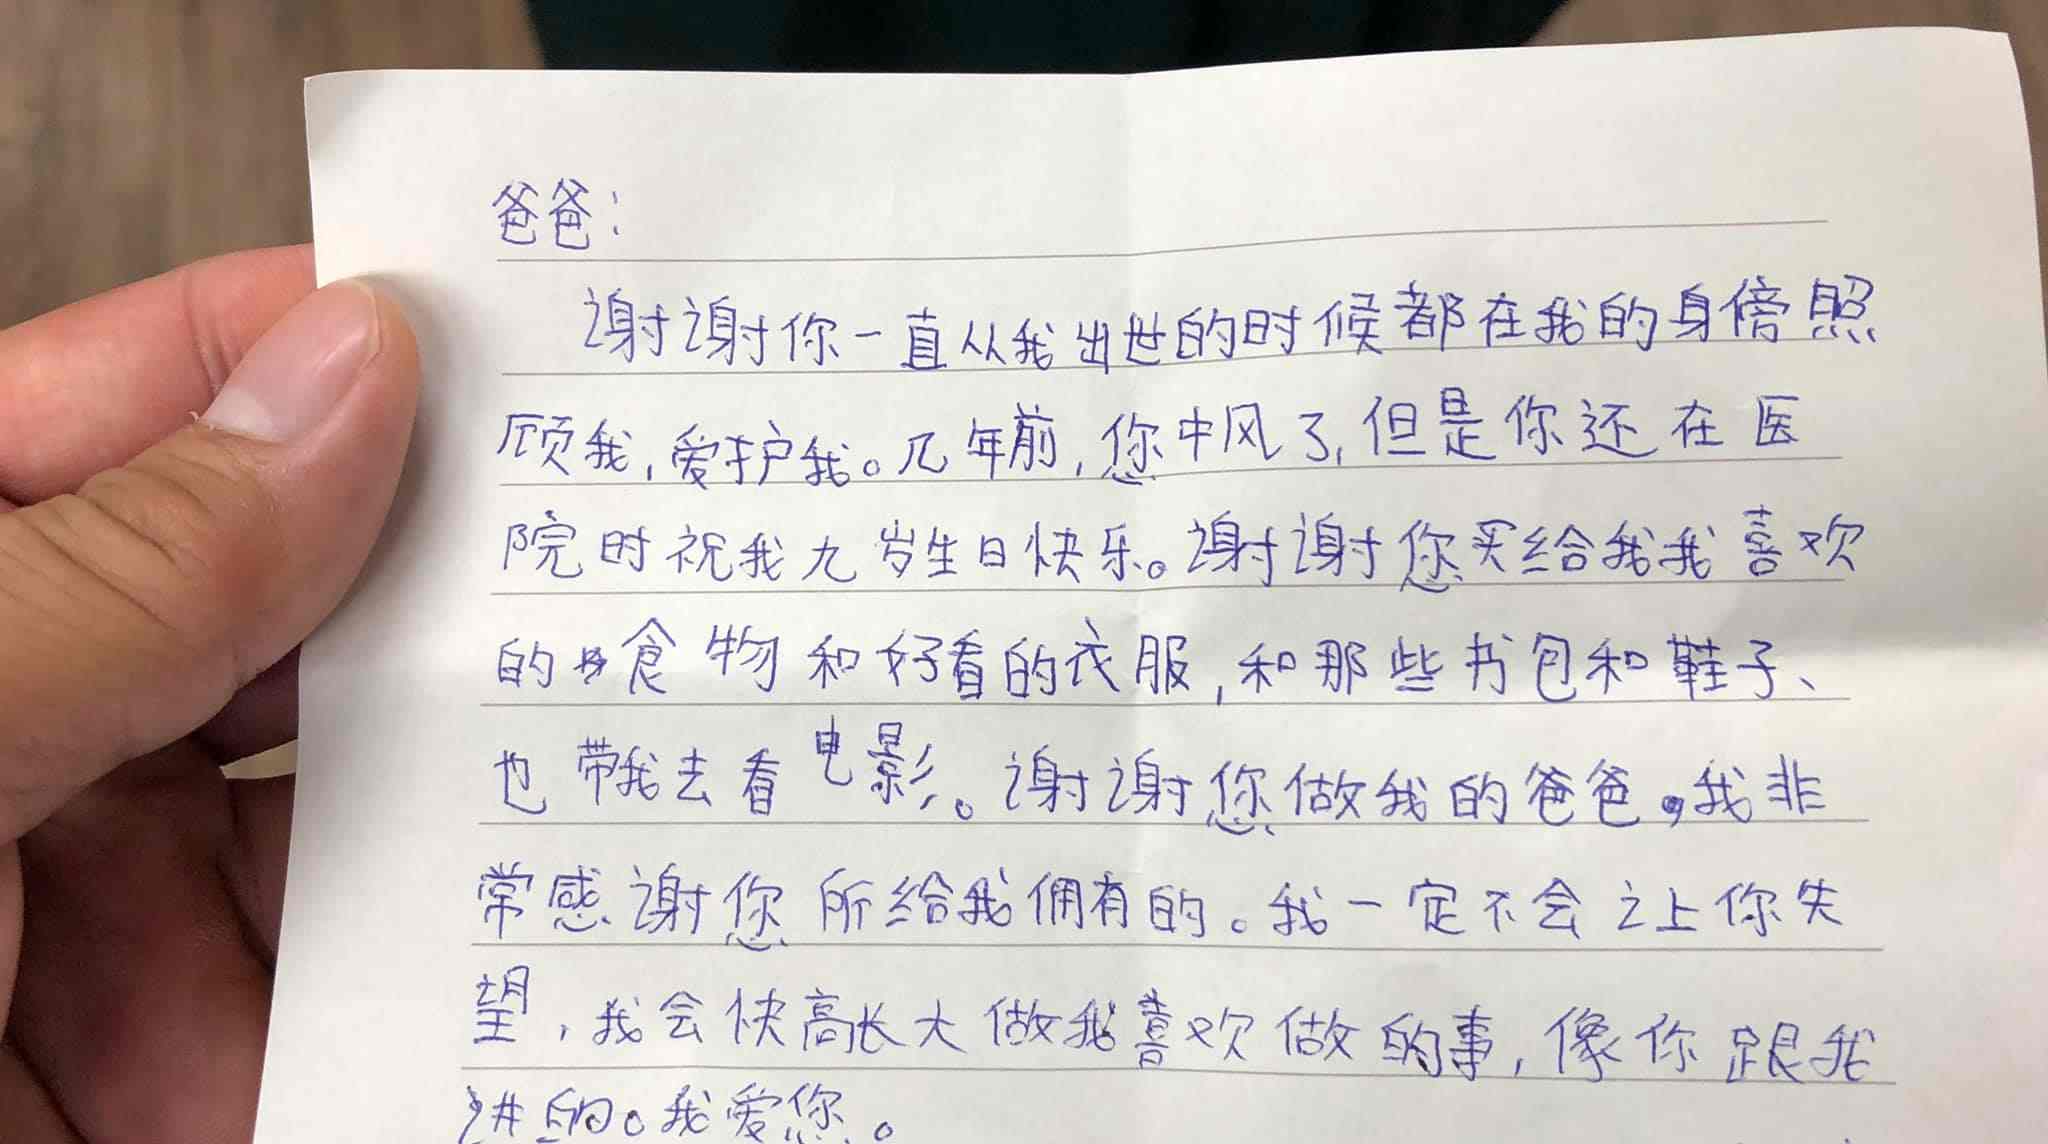 爸爸：
谢谢你一直从我出世的时候都在我的身傍照
顾我，爱护我。几年前，您中风了，但是你还在医
院时祝我九岁生日快乐。谢谢您买给我我喜欢
的食物和好看的衣服，和那些书包和鞋子、
也带我去看电影。谢谢您做我的爸爸，我非
常感谢您所给我佣有的。我一定不会让你失
望，我会快高长大做我喜欢做的事，像你跟我
讲的。我爱您。